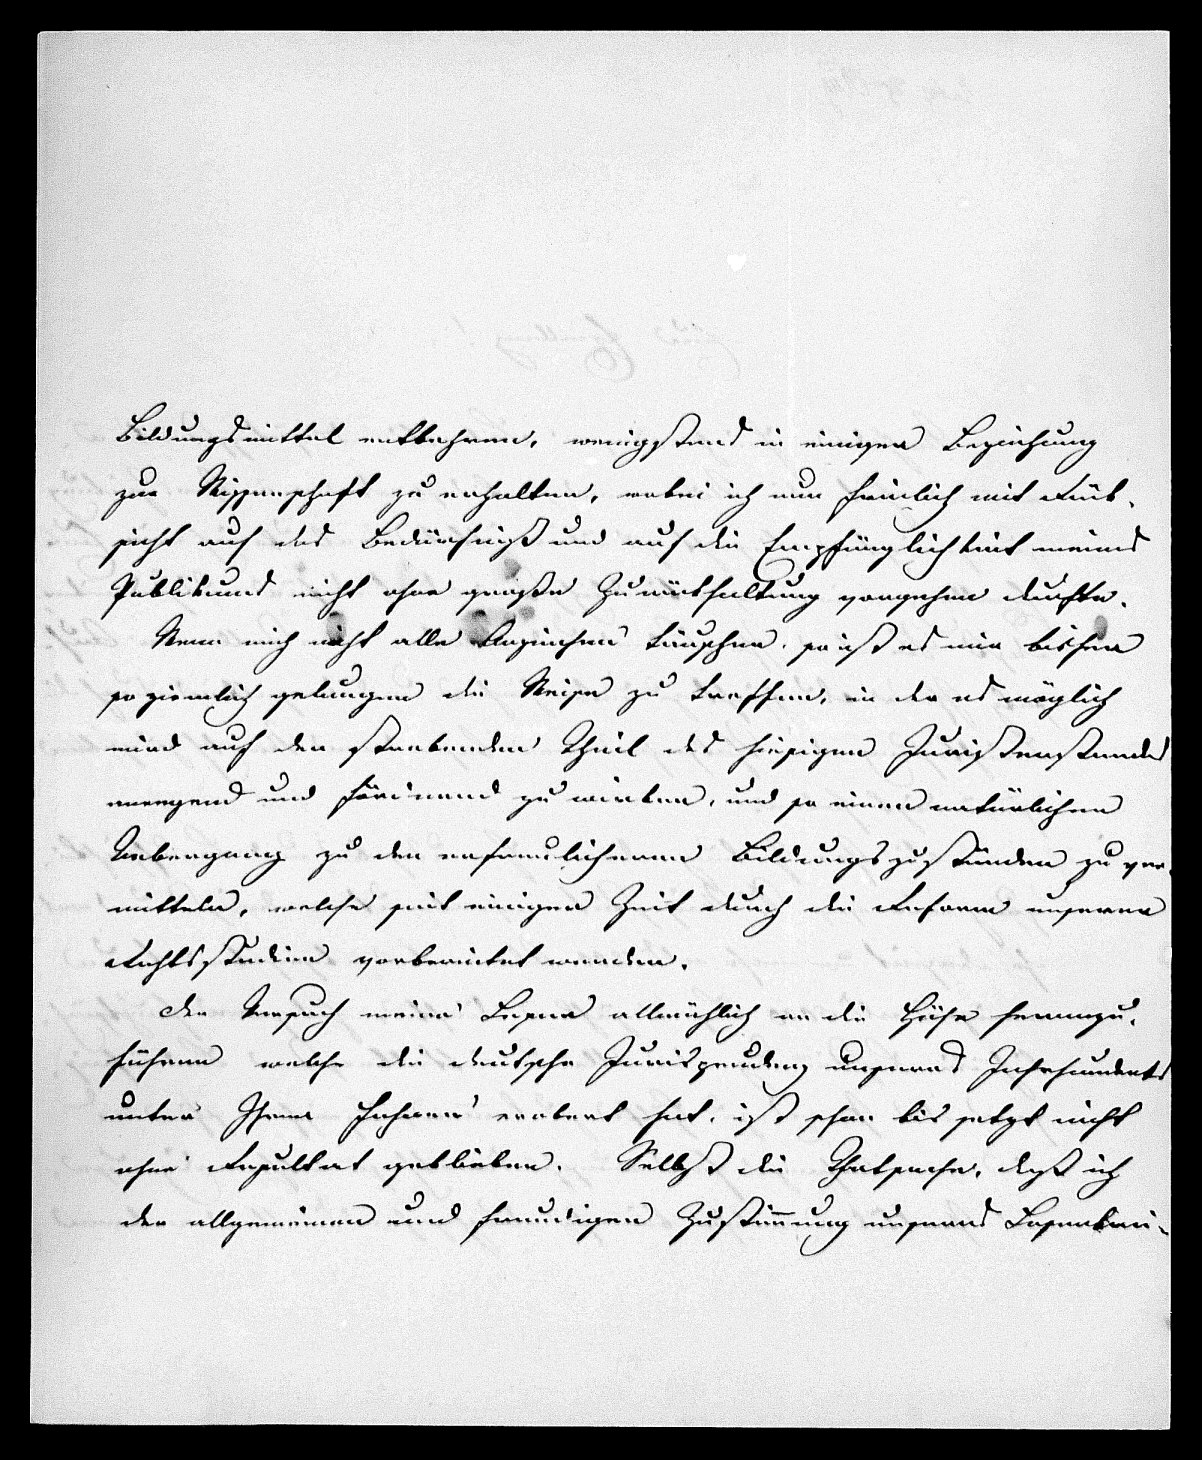 Bildungsmittel entbehren, wenigstens in einiger Beziehung
zur Wissenschaft zu erhalten, wobei ich nun freilich mit Rück-
sicht auf das Bedürfniß und auf die Empfänglichkeit meines
Publikums nicht ohne große Zurückhaltung vorgehen durfte.
Wenn mich nicht alle Anzeichen täuschen, so ist es mir bisher
so ziemlich gelungen die Weise zu treffen, in der es möglich
wird auf den strebenden Theil des hiesigen Juristenstandes
anregend und fördernd zu wirken, und so einen natürlichen
Uebergang zu den erfreulicheren Bildungszuständen zu ver-
mitteln, welche seit einiger Zeit durch die Reform unserer
Rechtsstudien vorbereitet werden.
Der Versuch meine Leser allmählich an die Höhe heranzu-
führen welche die deutsche Jurisprudenz unseres Jahrhunderts
unter Ihrem erobert hat, ist schon bis jetzt nicht
ohne Resultat geblieben. Selbst die Thatsache, daß ich
der allgemeinen und freudigen Zustimmung unseres Leserkrei-